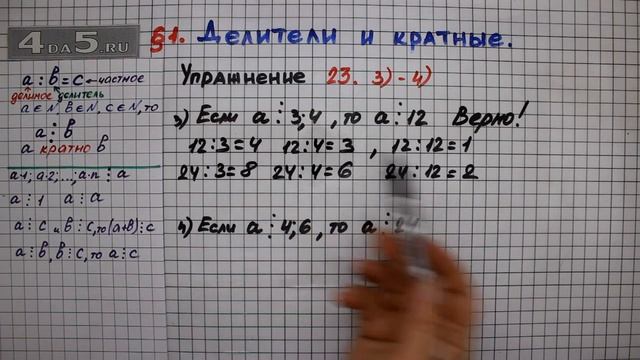 4DA5.RU
§1. Делители и кратные.
a : b = c ← частное
делимое делитель
a ∈ N, b ∈ N, c ∈ N, то
a ⋮ b
a кратно b
a·1; a·2; ...; a·n ⋮ a
a ⋮ 1 a ⋮ a
a ⋮ c и b ⋮ c, то (a+b) ⋮ c
a ⋮ b, b ⋮ c, то a ⋮ c
Упражнение 23. 3) - 4)
3) Если a ⋮ 3; 4, то a ⋮ 12 Верно!
12 : 3 = 4 12 : 4 = 3 , 12 : 12 = 1
24 : 3 = 8 24 : 4 = 6 24 : 12 = 2
4) Если a ⋮ 4; 6, то a ⋮